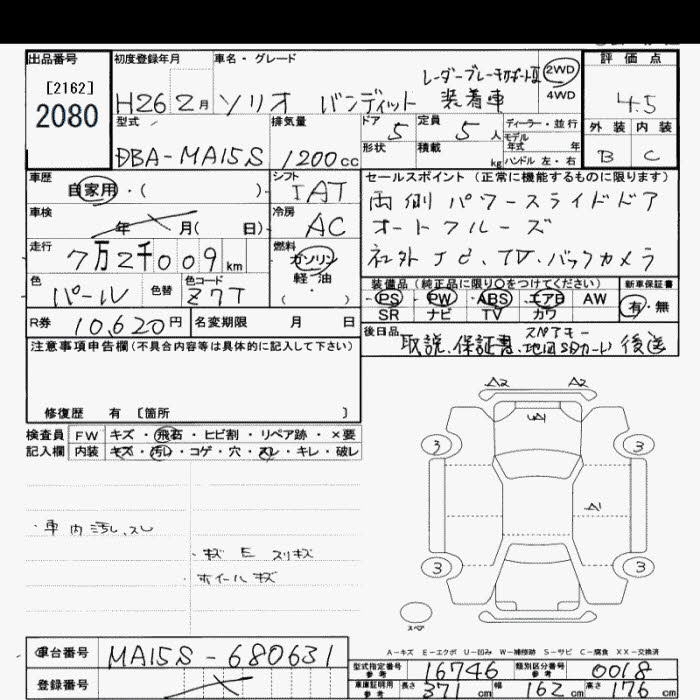 出品番号 初度登録年月 車名・グレード 評価点
[2162] レーダーブレーキサポートⅡ 2WD
2080 H26 2月 ソリオ バンディット 装着車 4WD 4.5
型式 排気量 ドア 定員 ディーラー・並行 外装 内装
5 5人 モデル年式 年
DBA-MA15S 1200cc 形状 積載 kg ハンドル 左・右 B C
車歴 シフト セールスポイント(正常に機能するものに限ります)
自家用・( ) IAT 両側パワースライドドア
車検 冷房 オートクルーズ
年 月( 日) AC 社外 TV.バックカメラ
走行 燃料
7万2千009km ガソリン
色 色替 色コード 軽油 装備品(純正品に限り○をつけてください) 新車保証書
パール Z7T ( ) PS PW ABS エアB AW 有・無
SR ナビ TV カワ
R券 10,620円 名変期限 月 日 後日品 スペアキー
注意事項申告欄(不具合内容等は具体的に記入して下さい) 取説、保証書、地図SDカード 後送
修復歴 有 [箇所 ]
検査員 FW キズ・飛石・ヒビ割・リペア跡・×要
記入欄 内装 キズ・汚レ・コゲ・穴・スレ・キレ・破レ
A2 A2
UA1
3 3
A1
・車内汚レ、スレ
・キズ E スリキズ
・ホイールキズ
3 3
スペア
A-キズ E-エクボ U-凹み W-補修跡 S-サビ C-腐食 XX-交換済
車台番号 MA15S-680631
型式指定番号 参考 16746 類別区分番号 参考 0018
登録番号
車庫証明用 参考 長さ 371cm 幅 162cm 高さ 176cm